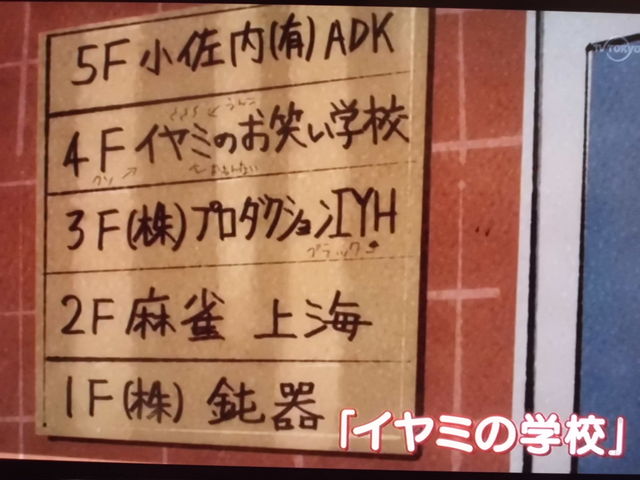 TV TOKYO
5F 小佐内(有)ADK
うんこ
4F イヤミのお笑い学校
クソ
3F(株)プロダクションIYH
ブラック
2F 麻雀 上海
1F(株) 鈍器
「イヤミの学校」